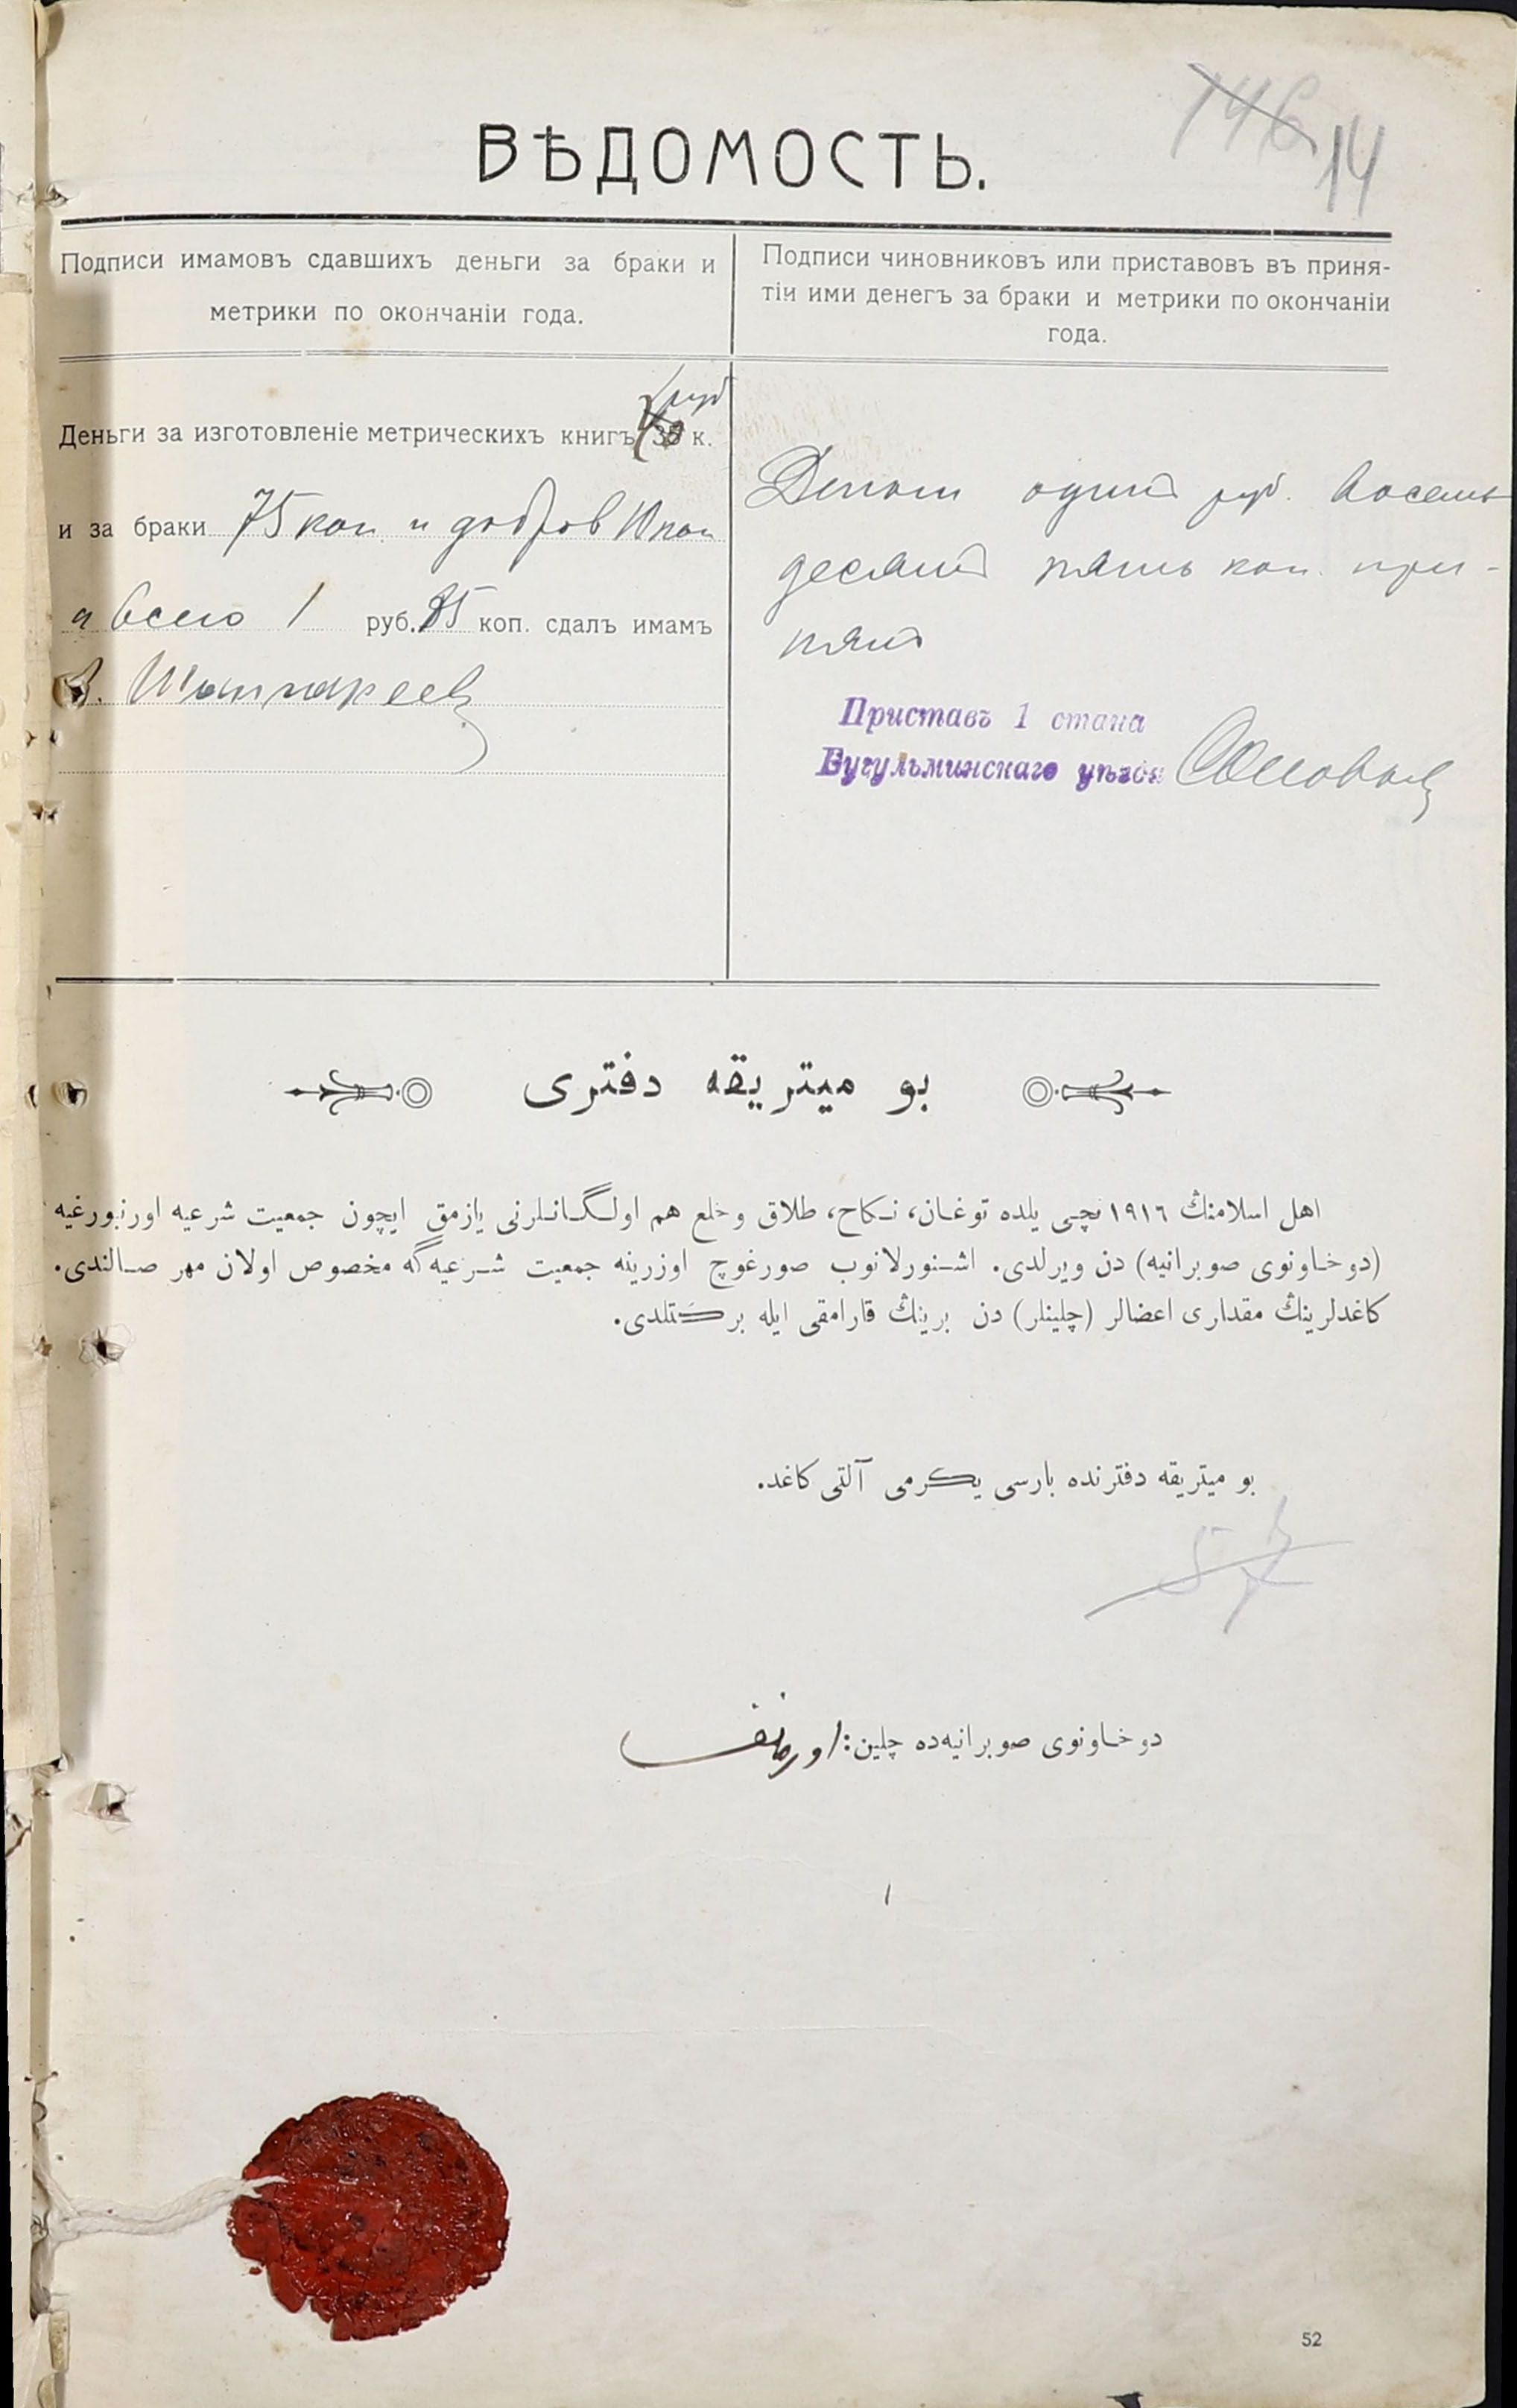 146 14
ВѢДОМОСТЬ.
Подписи имамовъ сдавшихъ деньги за браки и
метрики по окончаніи года.
Подписи чиновниковъ или приставовъ въ приня-
тіи ими денегъ за браки и метрики по окончаніи
года.
Деньги за изготовленіе метрическихъ книгъ 1 руб к.
и за браки 75 коп. и добров 10 коп
и всего 1 руб. 85 коп. сдалъ имамъ
Шангареевъ
Деньги один руб. восемь
десят пять коп. при-
нят
Приставъ 1 стана
Бугульминскаго уѣзда
بو ميتريقه دفترى
اهل اسلامنڭ ١٩١٦ نچى يلده توغان، نكاح، طلاق وخلع هم اولگانلرنى يازمق ايچون جمعيت شرعيه اورنبورغيه
(دوخاونوى صوبرانيه) دن ويرلدى. اشنورلانوب صورغوچ اوزرينه جمعيت شرعيه‌گه مخصوص اولان مهر صالندى.
كاغدلرينڭ مقدارى اعضالر (چلينلر) دن برينڭ قارامقى ايله بركتلدى.
بو ميتريقه دفترنده بارسى يكرمى آلتى كاغد.
دوخاونوى صوبرانيه‌ده چلين:
52